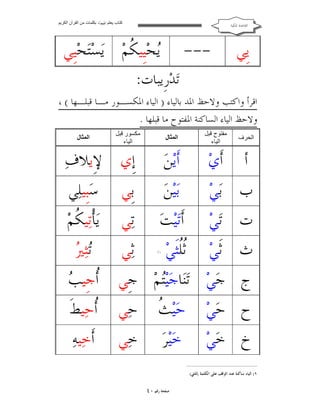 كتاب يعلم تهجيت بكلمات من القرآن الكريم
يِي --- يُحْيِيكُمْ يَسْتَحْيِي
تَدْرِيبات:
اقرأ واكتب ولاحظ المد بالياء ( الياء المكسور ما قبلها ) ،
ولاحظ الياء الساكنة المفتوح ما قبلها .
الحرف مفتوح قبل الياء المثال مكسور قبل الياء المثال
أ أَيْ أَيْنَ إِي لإِيلافِ
ب بَيْ بَيْنَ بِي سَبِيلِي
ت تَيْ أَتَيْتَ تِي يَأْتِيكُمْ
ث ثَيْ ثُلُثَيْ ثِي تُثِيرُ
ج جَيْ تَنَاجَيْتُمْ جِي أُجِيبُ
ح حَيْ حَيْثُ حِي أُحِيطَ
خ خَيْ خَيْرَ خِي أَخِيهِ
صفحة رقم ٤٠